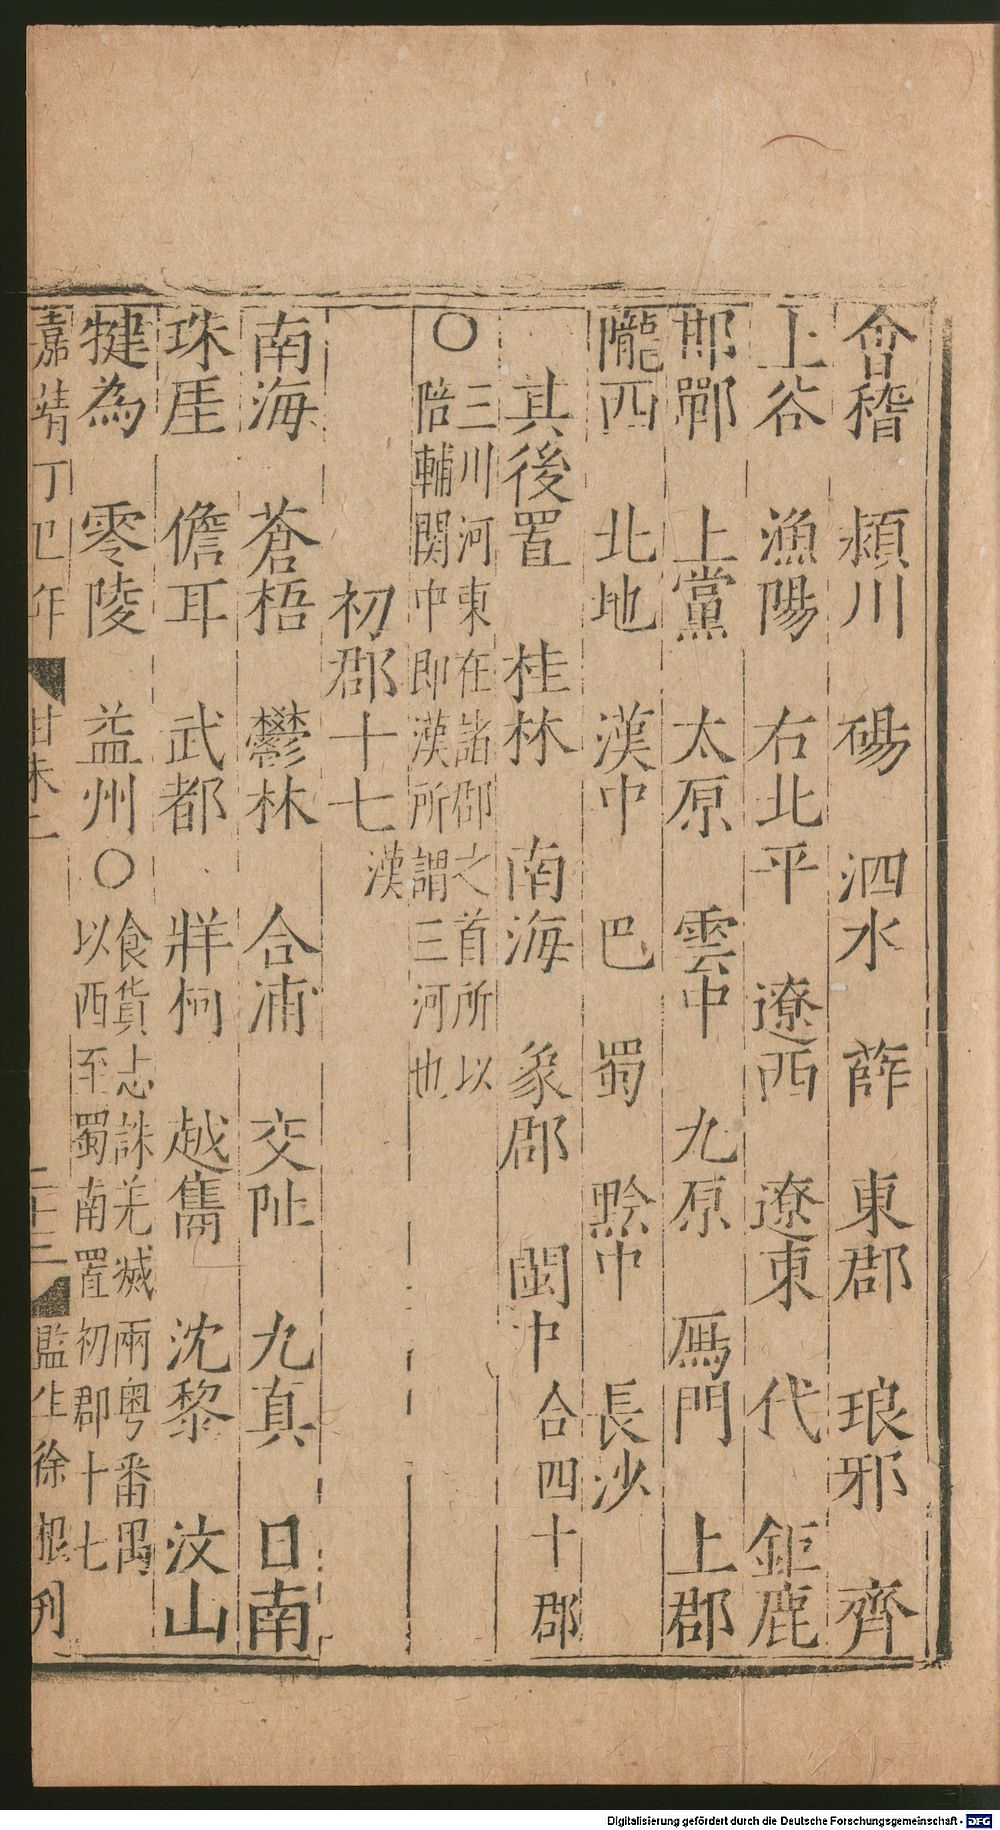 會稽 潁川 碭 泗水 薛 東郡 琅邪 齊
上谷 漁陽 右北平 遼西 遼東 代 鉅鹿
邯鄲 上黨 太原 雲中 九原 鴈門 上郡
隴西 北地 漢中 巴 蜀 黔中 長沙
其後置 桂林 南海 象郡 閩中 合四十郡
〇 三川河東在諸郡之首所以
陪輔関中即漢所謂三河也
初郡十七 漢
南海 蒼梧 鬱林 合浦 交阯 九真 日南
珠厓 儋耳 武都 牂柯 越雟 沈黎 汶山
犍為 零陵 益州 〇 食貨志誅羌滅兩粤番禺
以西至蜀南置初郡十七
嘉靖丁巳年
監生徐 刋
Digitalisierung gefördert durch die Deutsche Forschungsgemeinschaft - DFG